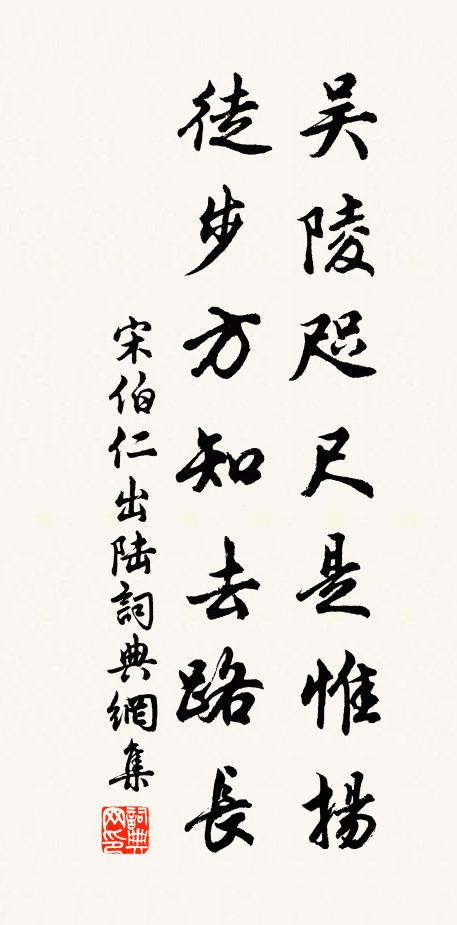 吴陵咫尺是惟揚
徒步方知去路長
宋伯仁出陆詞典網集
詞典网印